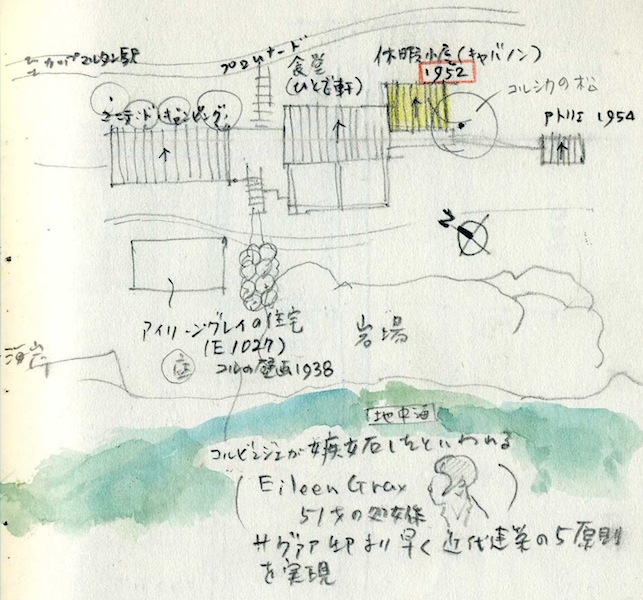 カップマルタン駅
プロムナード
食堂
(ひとで軒)
休暇小屋(キャバノン)
1952
コルシカの松
アトリエ 1954
ユニテ・ド・キャンピング
Z
アイリーングレイの住宅
(E1027)
コルの壁画1938
岩場
海岸
地中海
コルビュジェが嫉妬したといわれる
Eileen Gray
51才の処女作
サヴォア邸より早く近代建築の5原則
を実現